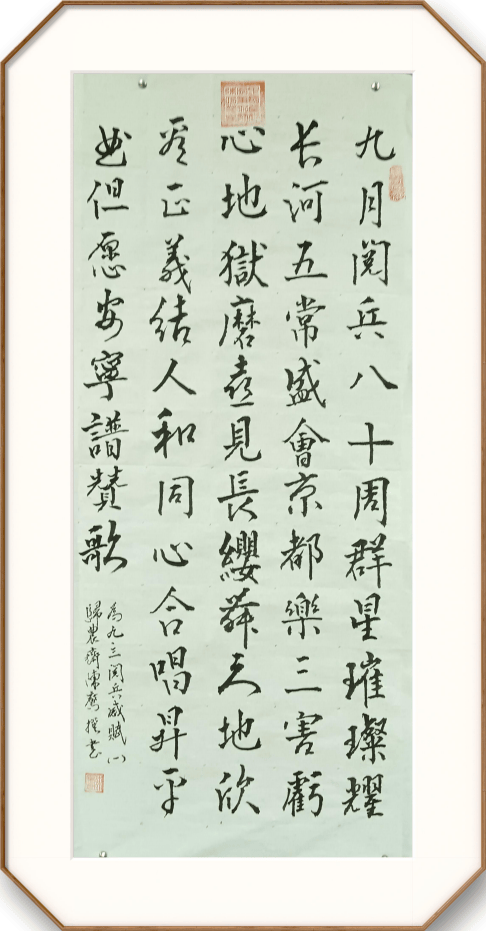 九月閱兵八十周群星璀璨耀
长河五常盛會京都樂三害虧
心地獄磨喜見長纓舞天地欣
看正義結人和同心合唱昇平
曲但愿安寧譜贊歌
為九三閱兵感賦
歸農齋陳撰書